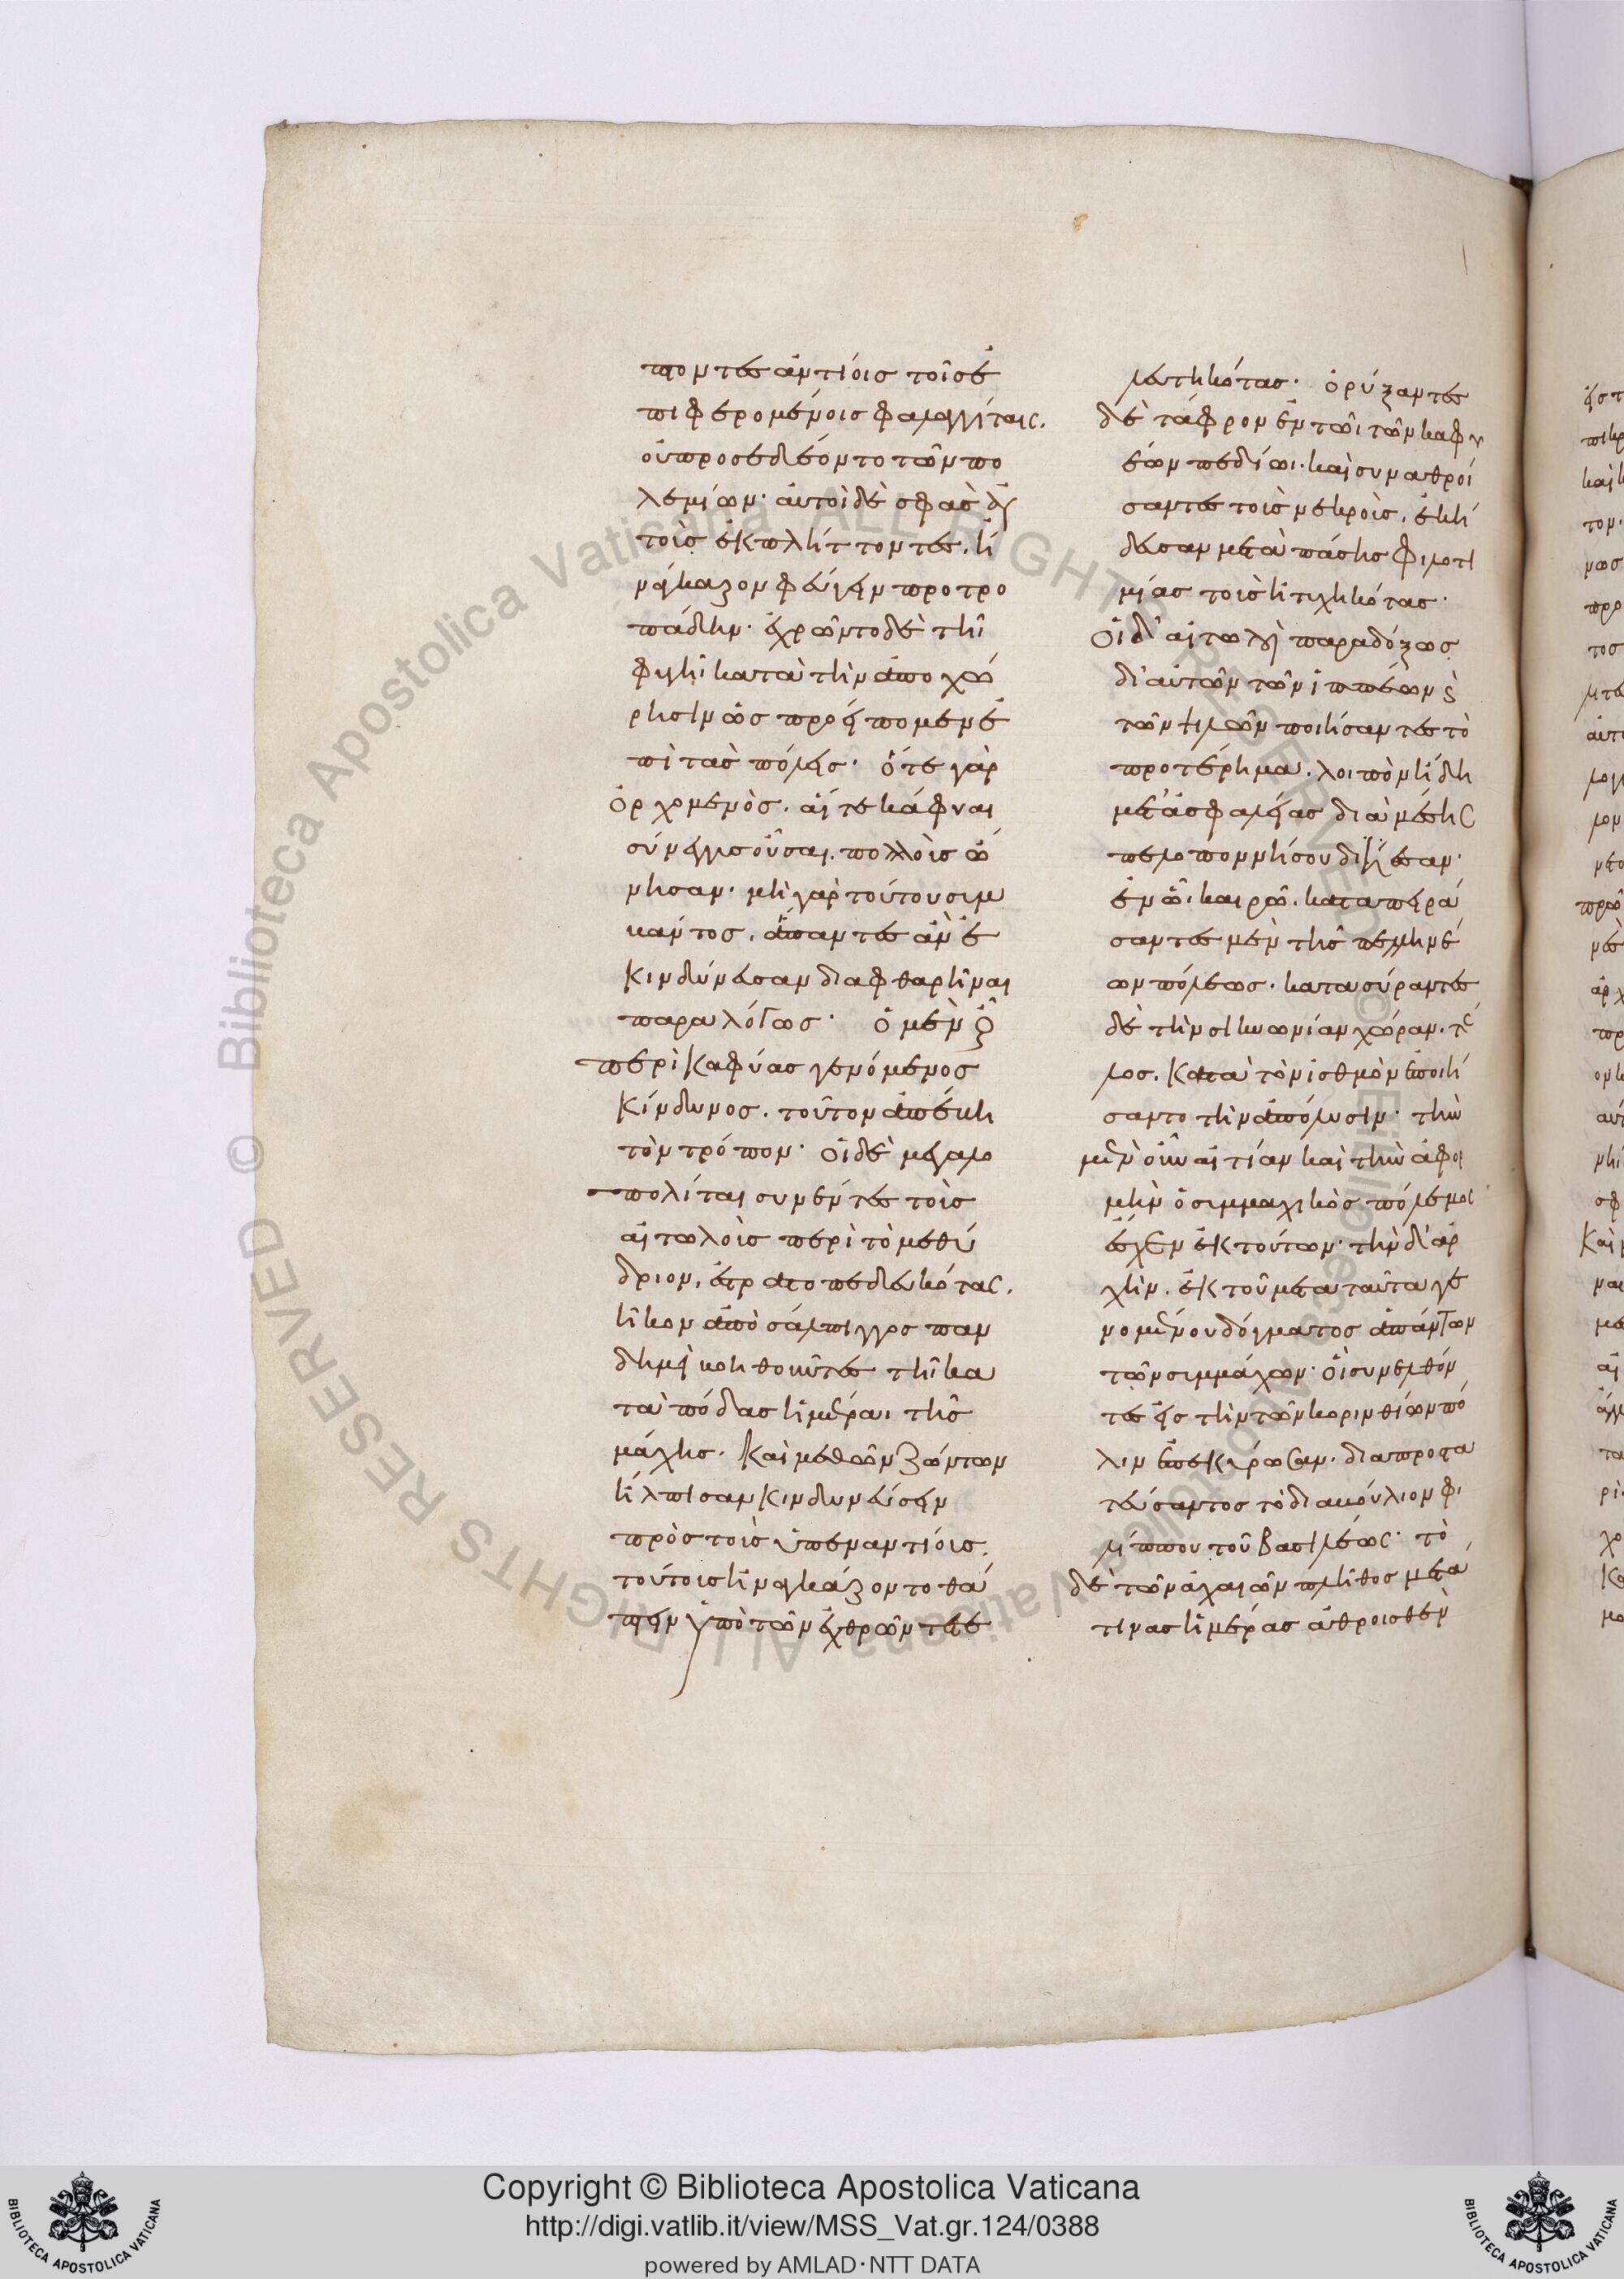 πιπτοντες ἀντίοις τοῖς ἐ
πιφερομένοις φαλαγγίταις.
οὐ προσεδέοντο τῶν πο
λεμίων· αὐτοὶ δὲ σφᾶς αὐ
τοὺς ἐκπλήττοντες, ἠ
νάγκαζον φεύγειν προτρο
πάδην· ἐχρῶντο δὲ τῆι
φυγῆι κατὰ τὴν ἀποχώ
ρησιν ὡς προείπομεν ἐ
πὶ τὰς πόλεις· ὅ τε γὰρ
ὀρχομενὸς. αἵ τε κάφυαι
σύνεγγυς οὖσαι. πολλοὺς ὤ
νησαν· μὴ γὰρ τούτου συμ
βάντος, ἅπαντες ἂν ἐ
κινδύνευσαν διαφθαρῆναι
παραλόγως· ὁ μὲν οὖν
περὶ καφύας γενόμενος
κίνδυνος. τοῦτον ἀπέβη
τὸν τρόπον· οἱ δὲ μεγαλο
πολῖται συνέντες τοὺς
αἰτωλοὺς περὶ τὸ μεθύ
δριον, ἐστρατοπεδευκότας,
ἧκον ἀπὸ σάλπιγγος παν
δημεὶ βοηθοῦντες τῆι κα
τὰ πόδας ἡμέραι τῆς
μάχης. καὶ μεθ' ὧν ζώντων
ἤλπισαν κινδυνεύσειν
πρὸς τοὺς ὑπεναντίους.
τούτους ἠναγκάζοντο θά
πτειν ὑπὸ τῶν ἐχθρῶν τετε
λευτηκότας· ὀρύξαντες
δὲ τάφρον ἐν τῶι τῶν καφυ
έων πεδίωι· καὶ συναθροί
σαντες τοὺς νεκροὺς, ἐκή
δευσαν μετὰ πάσης φιλοτι
μίας τοὺς ἠτυχηκότας·
οἱ δ' αἰτωλοὶ παραδόξως
δι' αὐτῶν τῶν ἱππέων καὶ
τῶν ψιλῶν ποιήσαντες τὸ
προτέρημα. λοιπὸν ἤδη
μετ' ἀσφαλείας διὰ μέσης
πελοποννήσου διῄεσαν·
ἐν ᾧ καιρῷ. καταπειρά
σαντες μὲν τῆς πελληνέ
ων πόλεως· κατασύραντες
δὲ τὴν σικυωνίαν χώραν. τέ
λος. κατὰ τὸν ἰσθμὸν ἐποιή
σαντο τὴν ἀπόλυσιν· τὴν
μὲν οὖν αἰτίαν καὶ τὴν ἀφορ
μὴν ὁ συμμαχικὸς πόλεμος
ἔσχεν ἐκ τούτων· τὴν δ' ἀρ
χὴν. ἐκ τοῦ μετὰ ταῦτα γε
νομένου δόγματος ἁπάντων
τῶν συμμάχων· οἳ συνελθόν
τες εἰς τὴν τῶν κορινθίων πό
λιν ἐπεκύρωσαν. διαπροστα
τεύσαντος τὸ διαβούλιον φι
λίππου τοῦ βασιλέως· τὸ
δὲ τῶν ἀχαιῶν πλῆθος μετά
τινας ἡμέρας ἁθροισθὲν